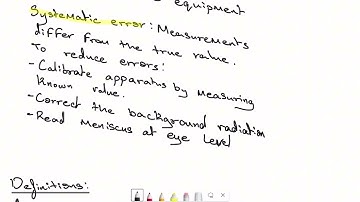 equipment
Systematic error: Measurements
differ from the true value.
To reduce errors:
- Calibrate apparatus by measuring
known value.
- Correct the background radiation
- Read Meniscus at eye level
Definitions: